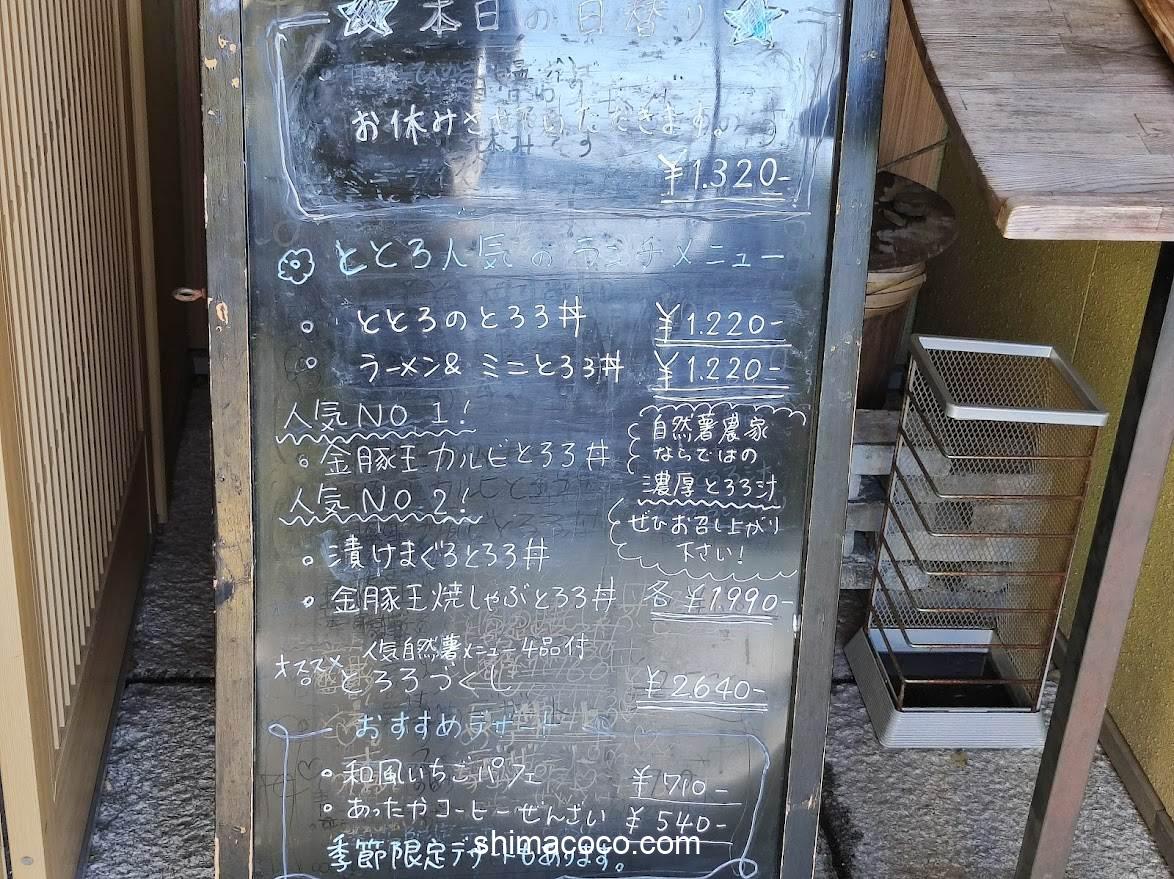 本日の日替り
お休みさせていただきます。
¥1.320-
ととろ人気のランチメニュー
ととろのとろろ丼 ¥1.220-
ラーメン& ミニとろろ丼 ¥1.220-
人気NO.1!
金豚王カルビとろろ丼
人気NO.2!
漬けまぐろとろろ丼
金豚王焼しゃぶとろろ丼 各¥1.990-
自然薯農家
ならではの
濃厚とろろ汁
ぜひお召し上がり
下さい!
人気自然薯メニュー4品付
オススメ とろろづくし ¥2.640-
おすすめデザート
和風いちごパフェ ¥710-
あったかコーヒーぜんざい ¥540-
季節限定デザートもあります。
shimacoco.com